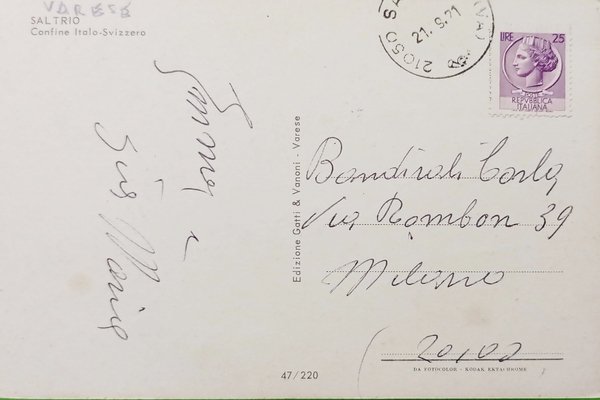 VARESE
SALTRIO
Confine Italo-Svizzero
21050 SA
(VA)
21.9.71
LIRE 25
POSTE
REPVBBLICA
ITALIANA
Bandirali Carla
Via Rombon 39
Milano
20100
e
Gio Maria
Edizione Gatti & Vanoni - Varese
47/220
DA FOTOCOLOR - KODAK EKTACHROME